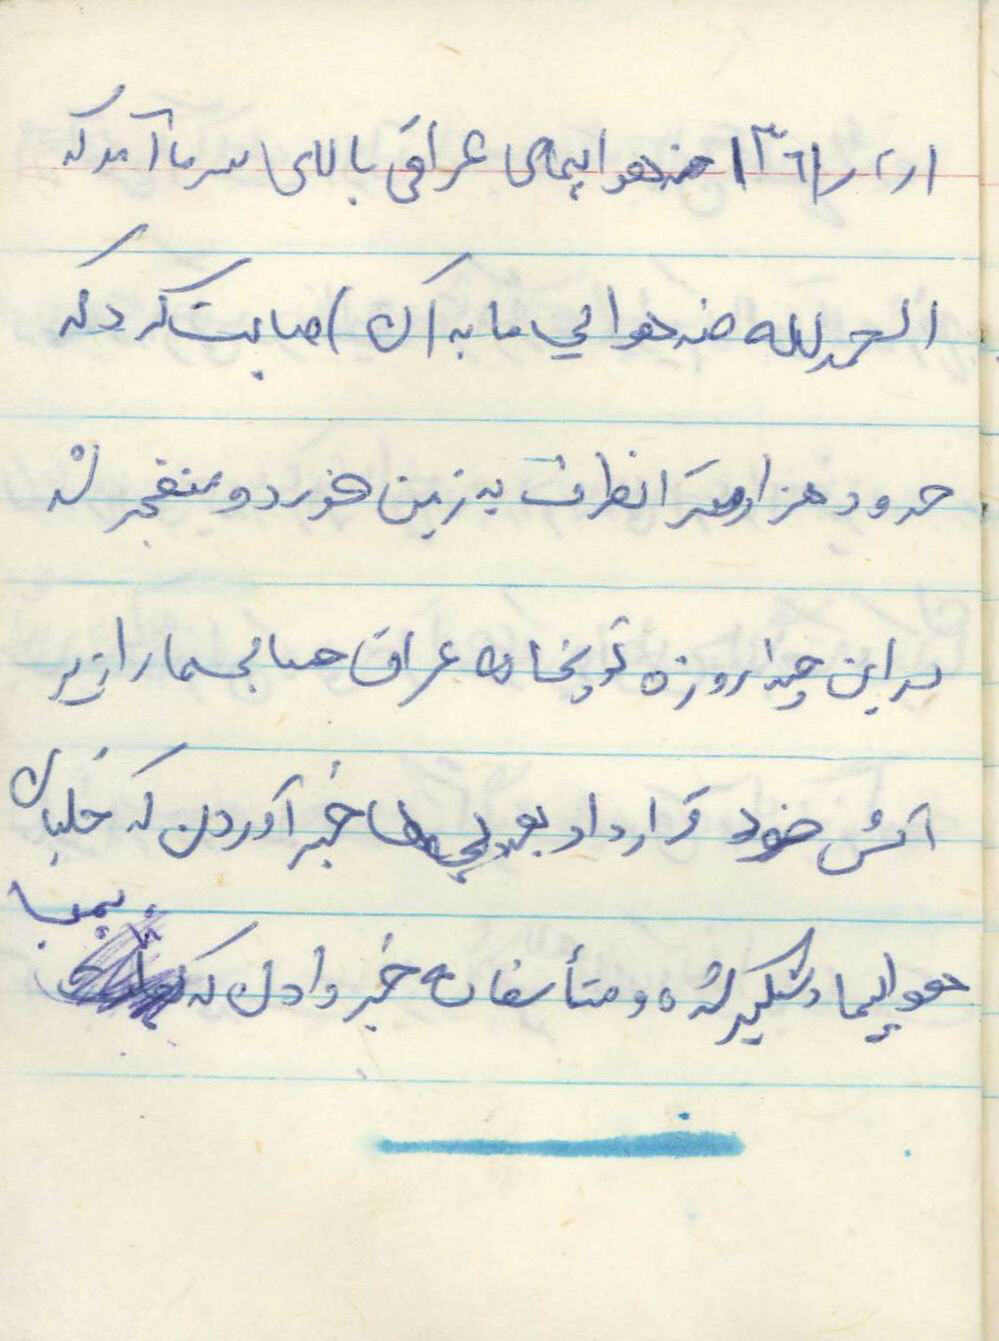 ۱۳٦۱ هواپیمای عراقی بالای سر ما آمد که
الحمدلله ضد هوائی ما به آن اصابت کرد که
حدود هزار متر انطرف به زمین خورد و منفجر شد
در این چند روزه توپخانه عراق حسابی ما را زیر
آتش خود قرار داد بعد خبر آوردن که خلبان
هواپیما دستگیر شده و متأسفانه خبر دادن که
بمب